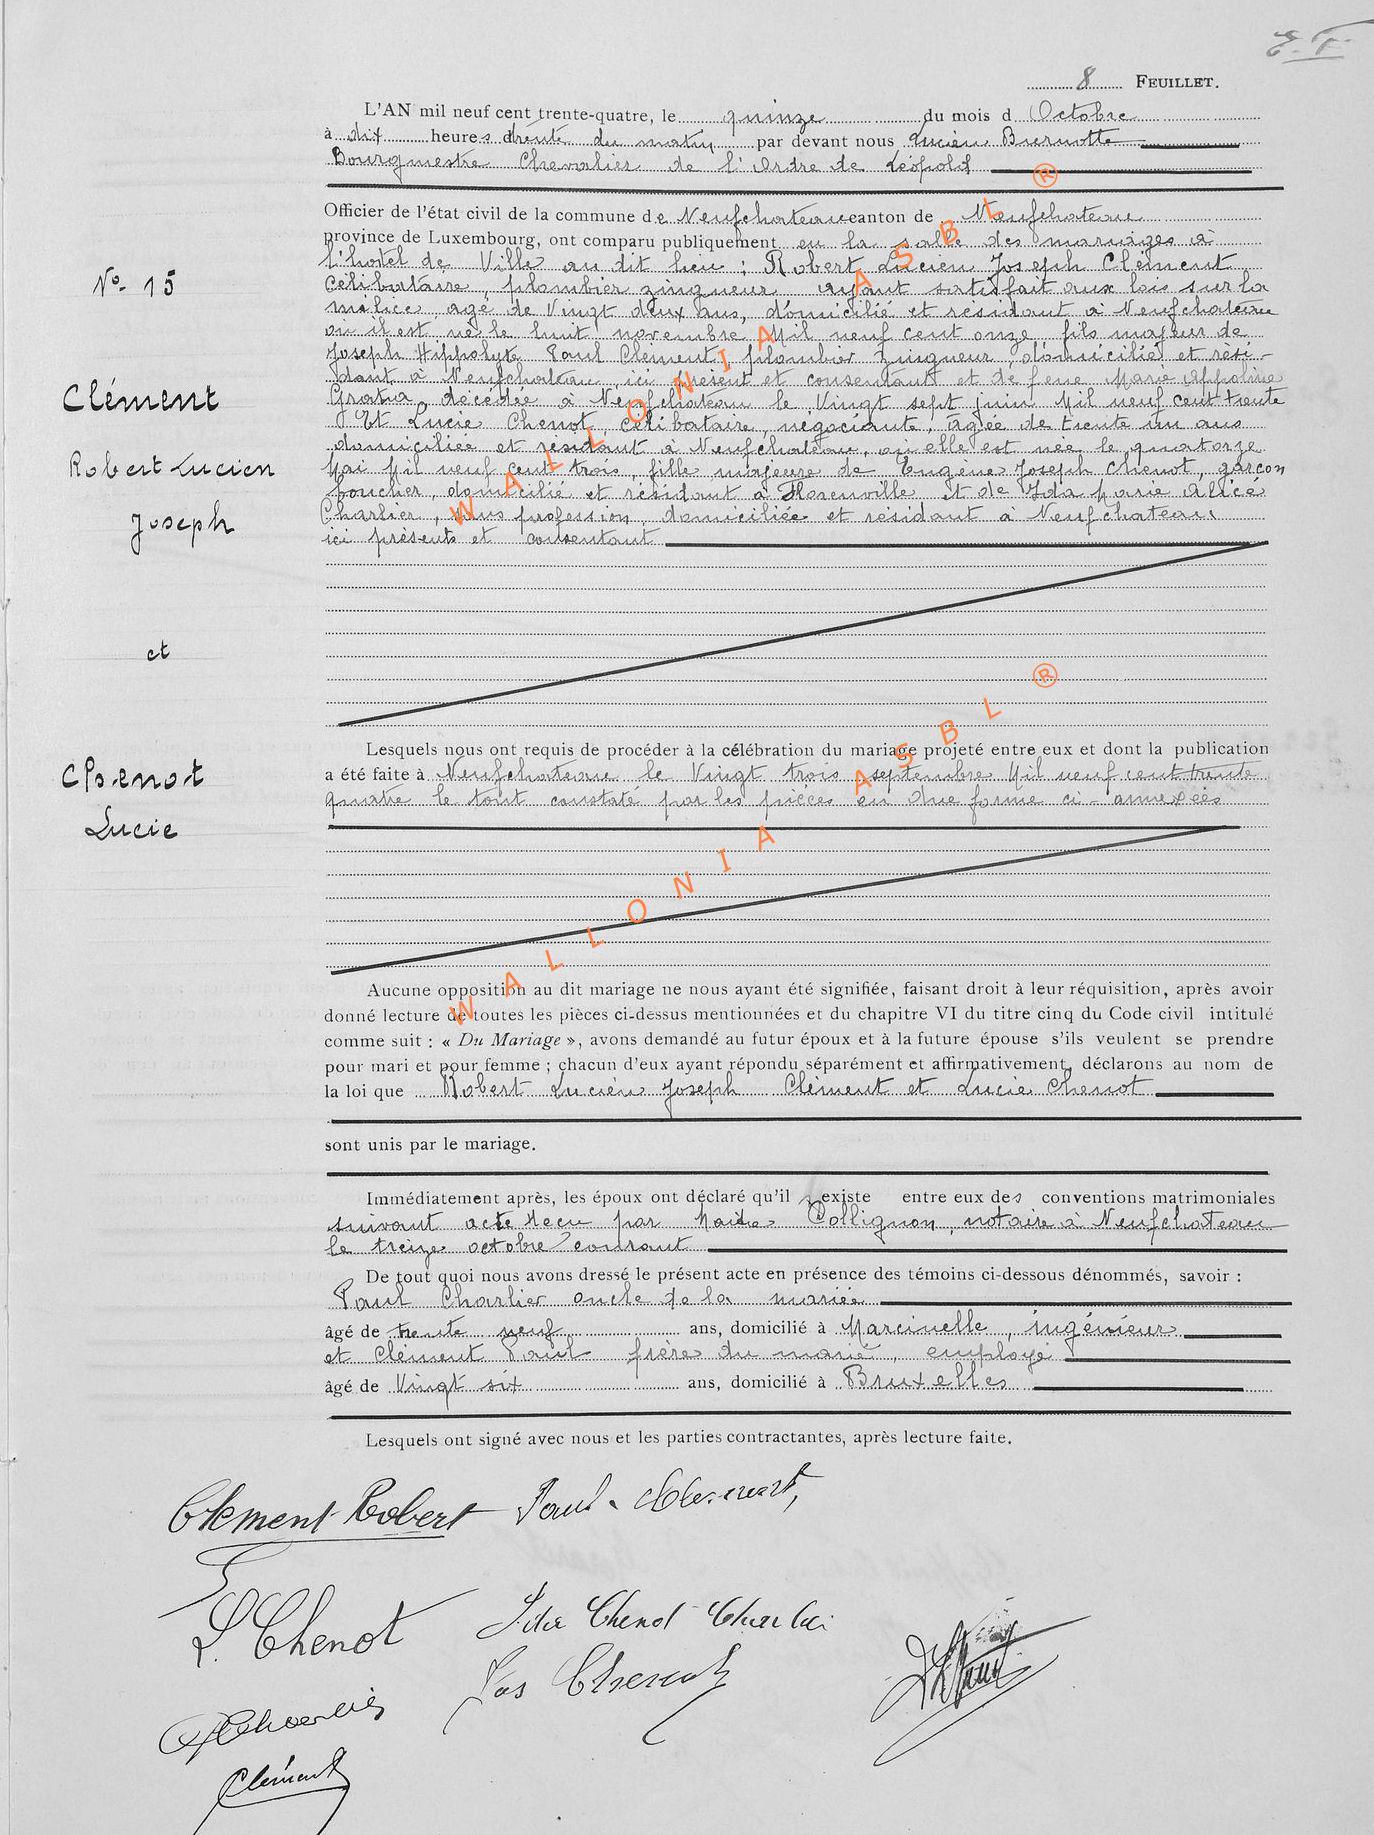 E. F.
8 FEUILLET.
L'AN mil neuf cent trente-quatre, le quinze du mois d Octobre
à dix heures trente du matin par devant nous Lucien Burnotte
Bourgmestre Chevalier de l'Ordre de Léopold
Officier de l'état civil de la commune de Neufchateau canton de Neufchateau
province de Luxembourg, ont comparu publiquement en la salle des mariages à
l'hotel de Ville au dit lieu : Robert Lucien Joseph Clément
N° 15
célibataire, plombier zingueur ayant satisfait aux lois sur la
milice, agé de Vingt deux ans, domicilié et résidant à Neufchateau
ou il est né le huit novembre Mil neuf cent onze, fils majeur de
Joseph Hippolyte Paul Clément, plombier zingueur, domicilié et rési-
dant à Neufchateau, ici présent et consentant et de feue Marie Appoline
Clément
Gratia, décédée à Neufchateau le Vingt sept juin Mil neuf cent trente
Et Lucie Chenot, célibataire, négociante, agée de trente un ans
domiciliée et résidant à Neufchateau, ou elle est née le quatorze
Robert Lucien
Mai Mil neuf cent trois, fille majeure de Eugène Joseph Chenot, garçon
boucher, domicilié et résidant à Florenville et de Ida Marie Alice
Joseph
Charlier, sans profession, domiciliée et résidant à Neufchateau
ici présents et consentant
et
Lesquels nous ont requis de procéder à la célébration du mariage projeté entre eux et dont la publication
Chenot
a été faite à Neufchateau le Vingt trois septembre Mil neuf cent trente
quatre le tout constaté par les pièces en due forme ci-annexées
Lucie
Aucune opposition au dit mariage ne nous ayant été signifiée, faisant droit à leur réquisition, après avoir
donné lecture de toutes les pièces ci-dessus mentionnées et du chapitre VI du titre cinq du Code civil intitulé
comme suit : « Du Mariage », avons demandé au futur époux et à la future épouse s'ils veulent se prendre
pour mari et pour femme ; chacun d'eux ayant répondu séparément et affirmativement, déclarons au nom de
la loi que Robert Lucien Joseph Clément et Lucie Chenot
sont unis par le mariage.
Immédiatement après, les époux ont déclaré qu'il existe entre eux des conventions matrimoniales
suivant acte recu par Maitre Collignon, notaire à Neufchateau
le treize octobre courant
De tout quoi nous avons dressé le présent acte en présence des témoins ci-dessous dénommés, savoir :
Paul Charlier oncle de la mariée
âgé de trente neuf ans, domicilié à Marcinelle, ingénieur
et Clément Paul frère du marié, employé
âgé de Vingt six ans, domicilié à Bruxelles
Lesquels ont signé avec nous et les parties contractantes, après lecture faite.
Clement Robert Paul Clement,
L. Chenot Ida Chenot Charlier
Jos Chenot
Charlier
Clément
WALLONIA ASBL ®
WALLONIA ASBL ®